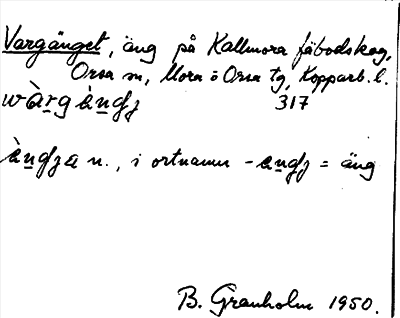 Vargänget, äng på Kallmora fäbodskog,
Orsa sn, Mora o Orsa tg, Kopparb. l.
wàrgàṉgʒ 317
àṉgʒa n., i ortnamn -aṉgʒ = äng
B. Granholm 1950.